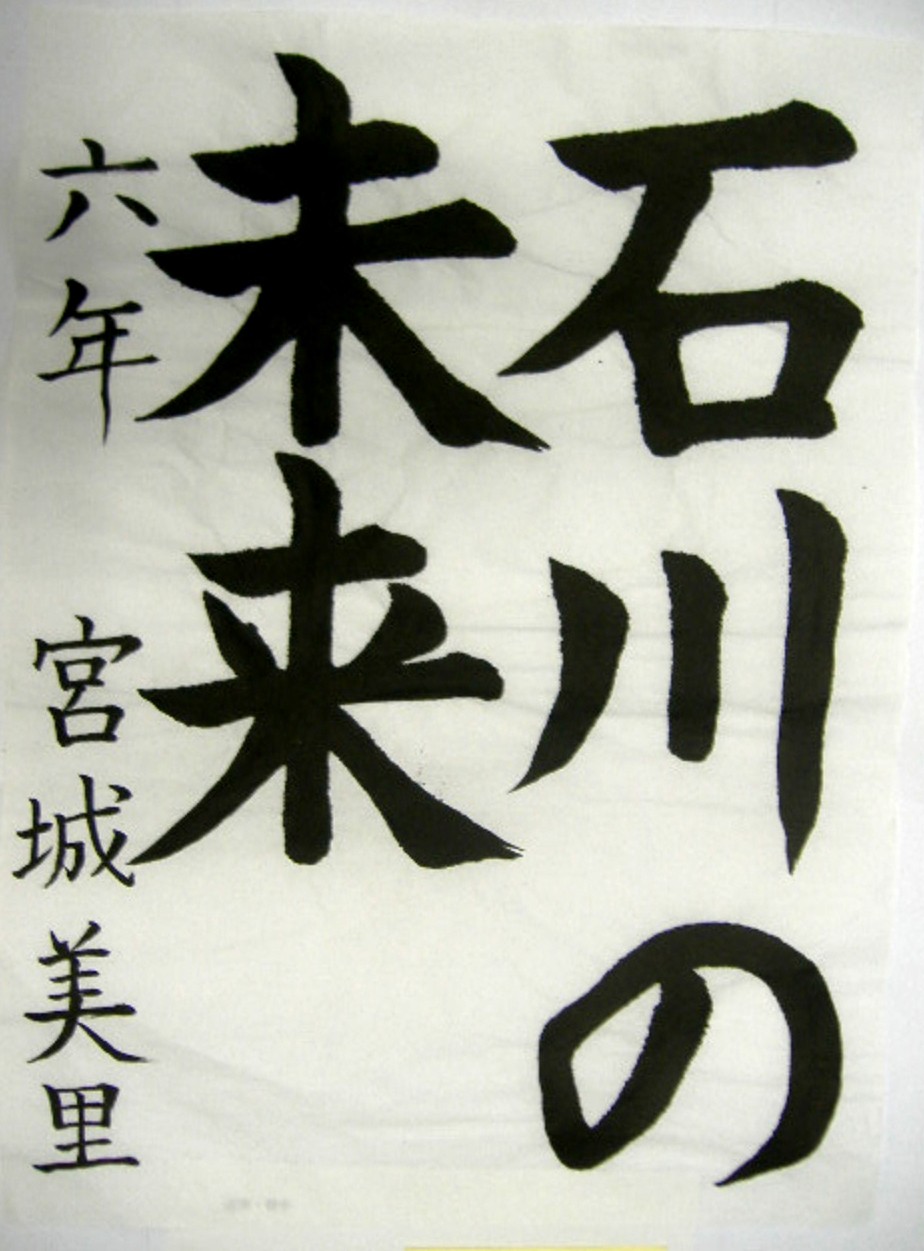 石川の
未来
六年 宮城美里